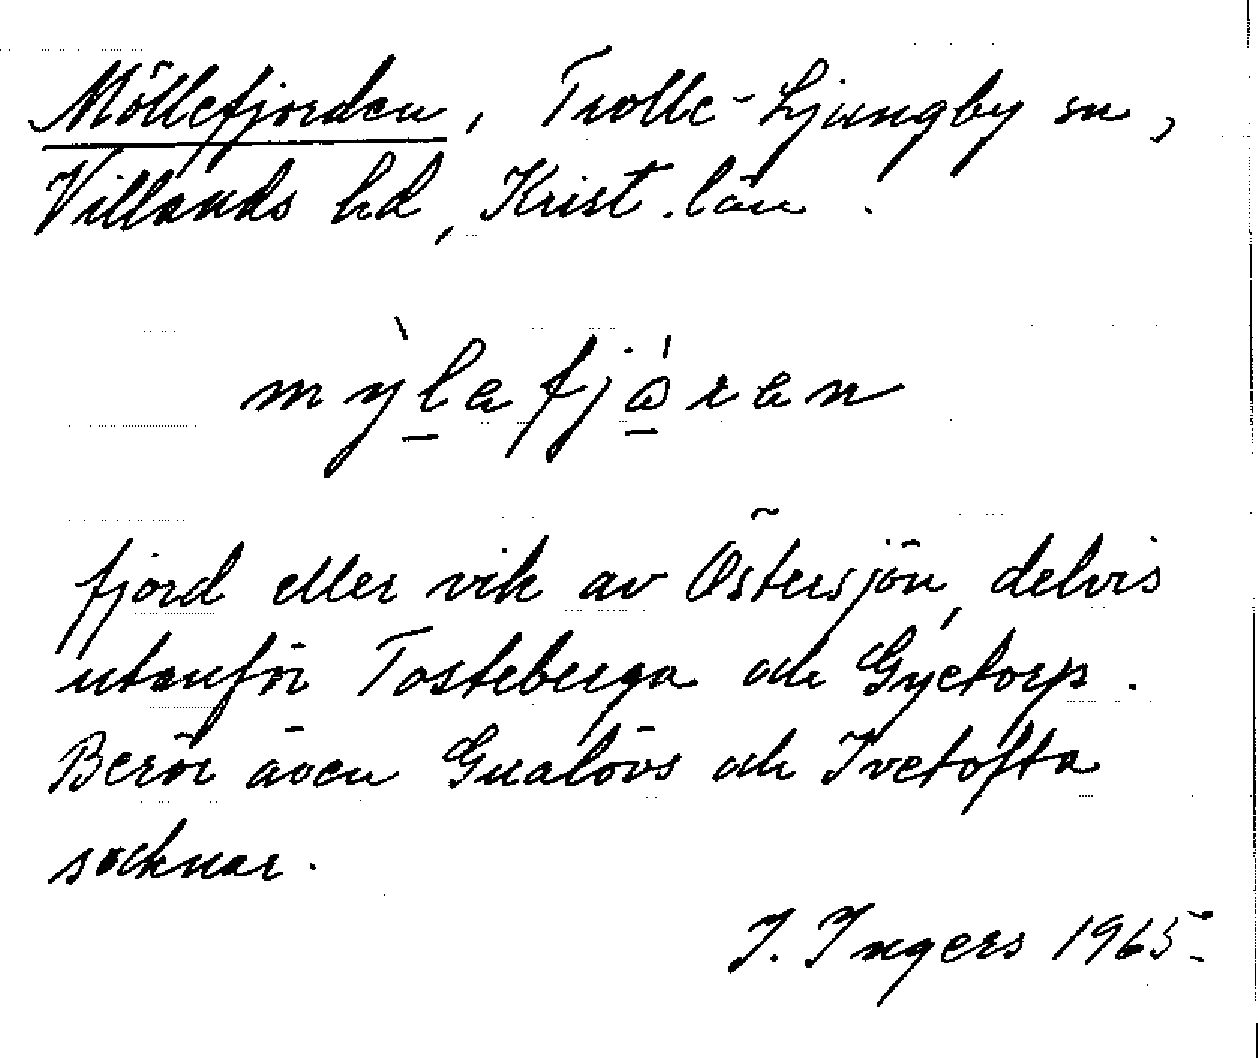 Möllefjorden, Trolle-Ljungby sn,
Villands hd, Krist. län.
mỳlafjáran
fjord eller vik av Östersjön, delvis
utanför Tosteberga och Gyetorp.
Berör även Gualövs och Ivetofta
socknar.
I. Ingers 1965.